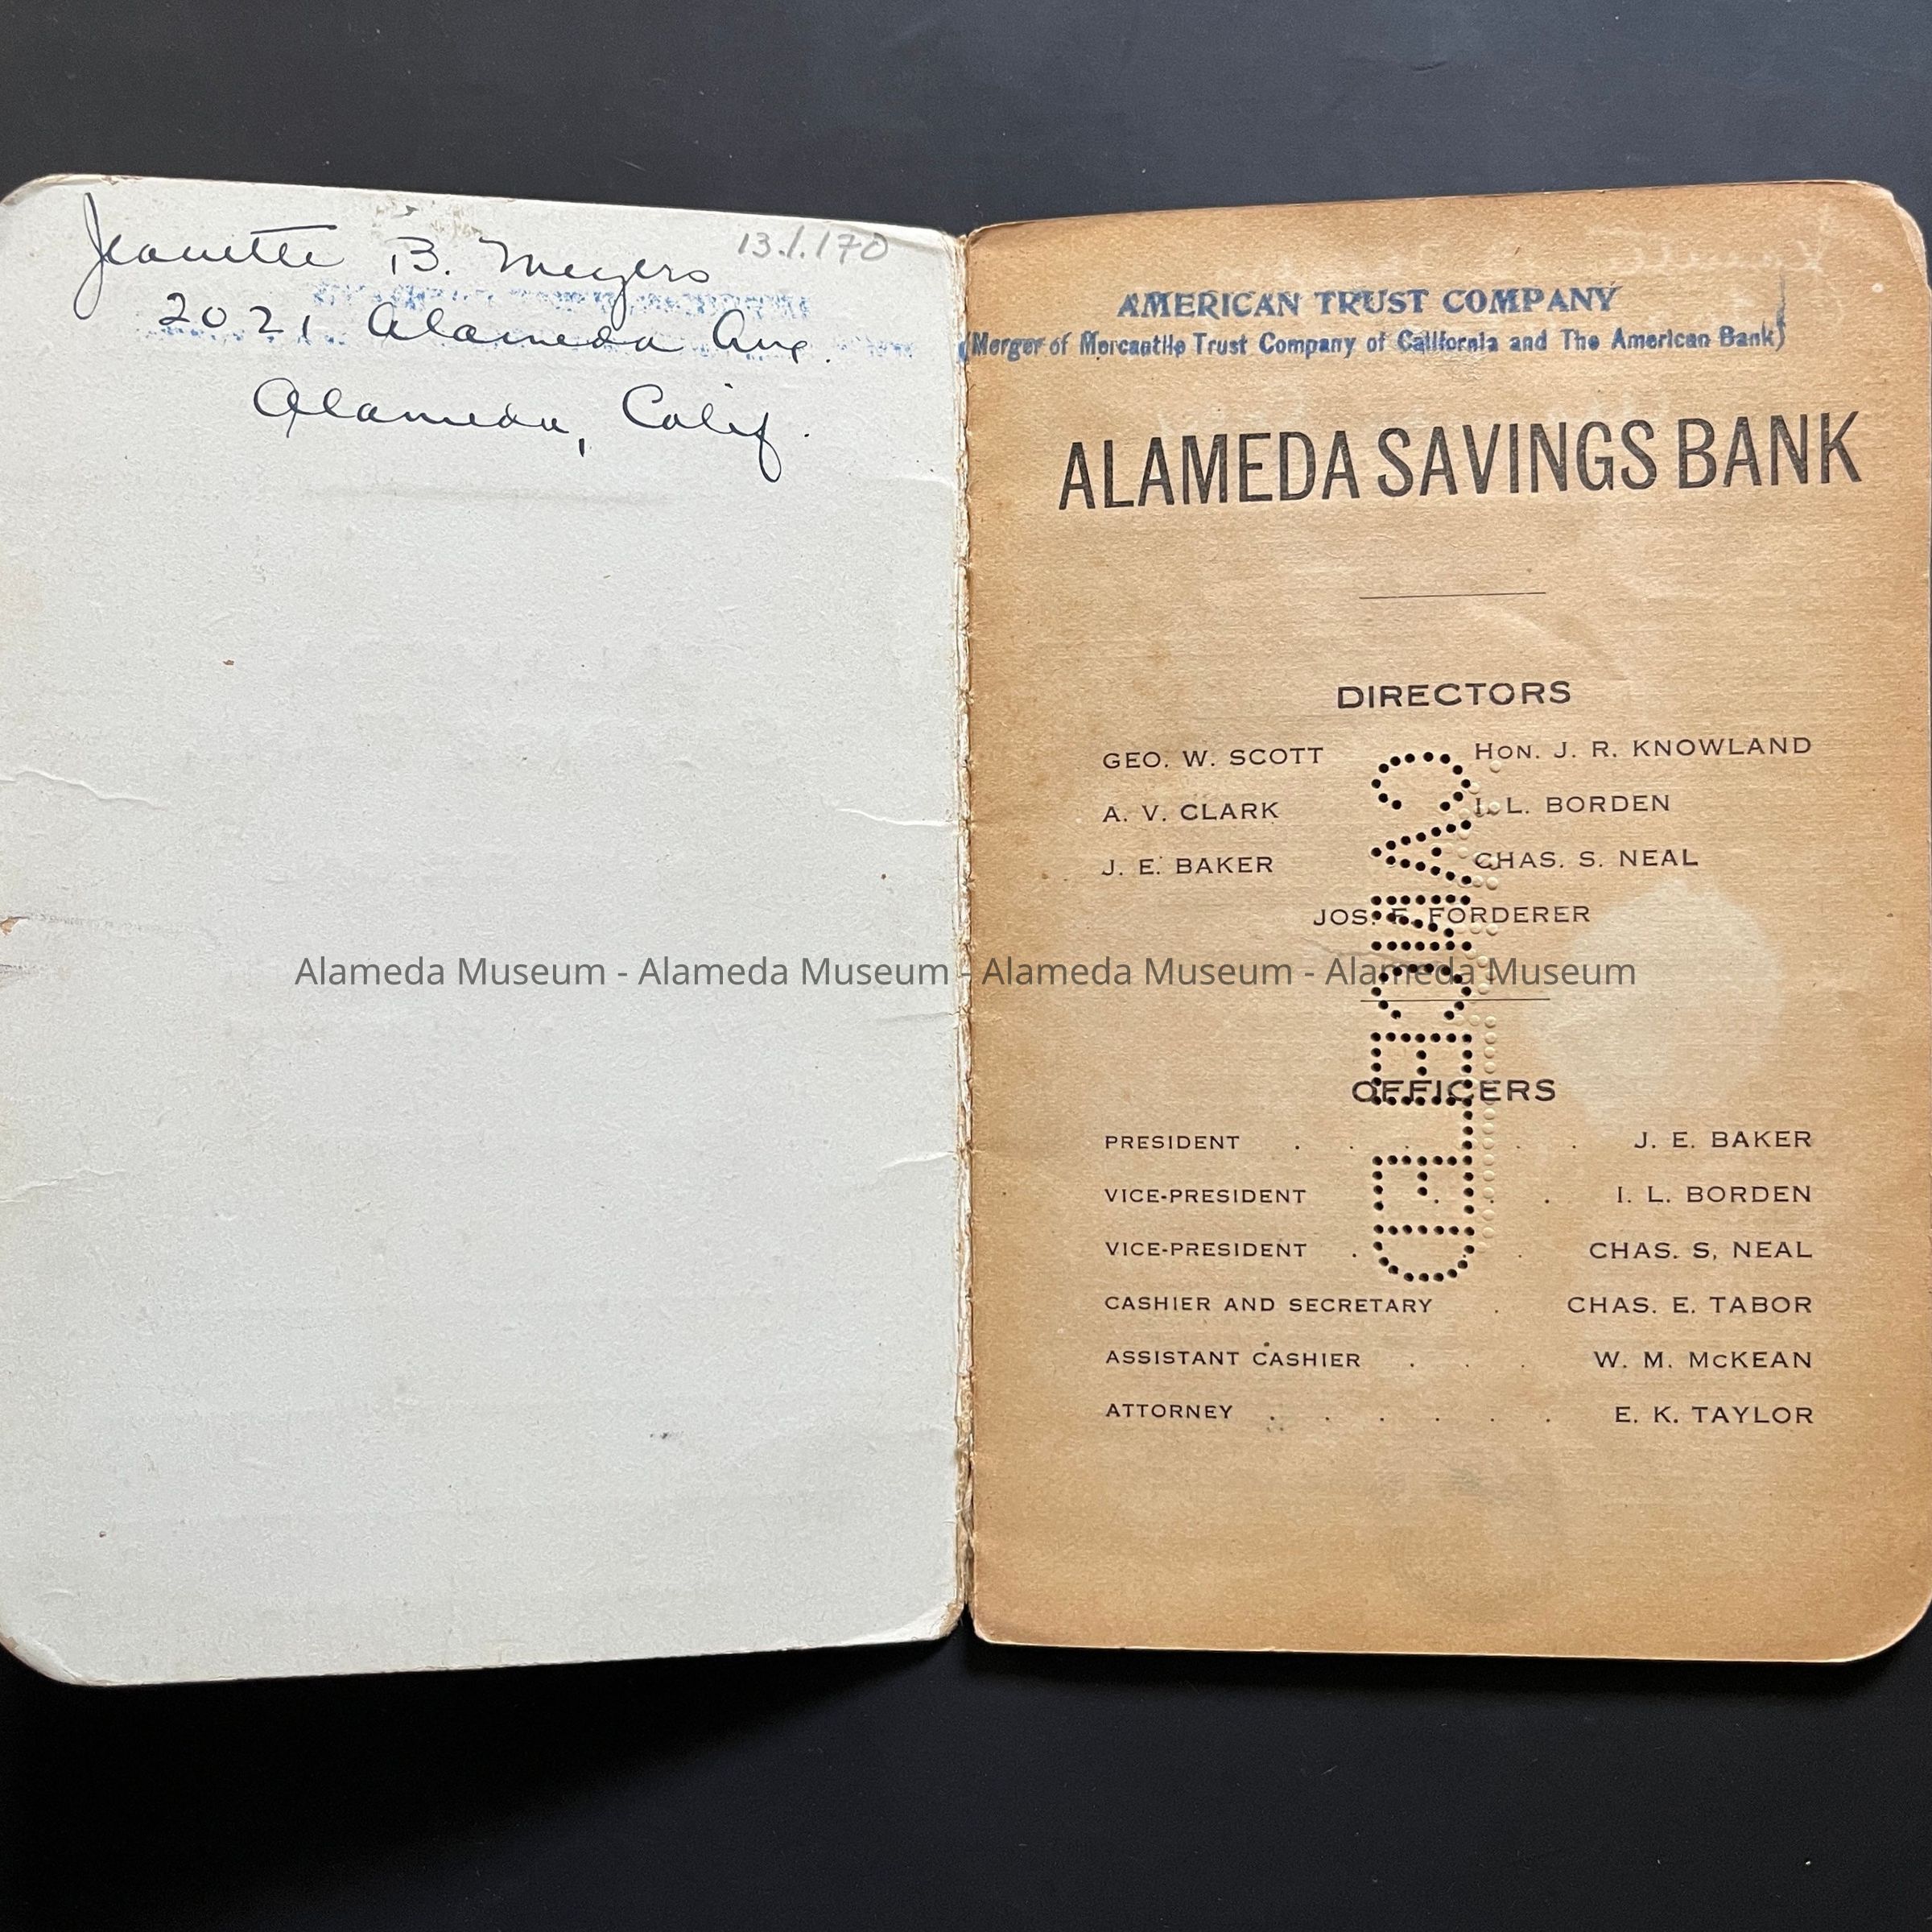 Jeanette B. Meyers
13.1.170
2021 Alameda Ave.
Alameda, Calif.
AMERICAN TRUST COMPANY
(Merger of Mercantile Trust Company of California and The American Bank)
ALAMEDA SAVINGS BANK
DIRECTORS
GEO. W. SCOTT Hon. J. R. KNOWLAND
A. V. CLARK I. L. BORDEN
J. E. BAKER CHAS. S. NEAL
JOS. F. FORDERER
CANCELED
OFFICERS
PRESIDENT . . . . . . J. E. BAKER
VICE-PRESIDENT . . . I. L. BORDEN
VICE-PRESIDENT . . . CHAS. S. NEAL
CASHIER AND SECRETARY . CHAS. E. TABOR
ASSISTANT CASHIER . . . W. M. McKEAN
ATTORNEY . . . . . . E. K. TAYLOR
Alameda Museum - Alameda Museum - Alameda Museum - Alameda Museum